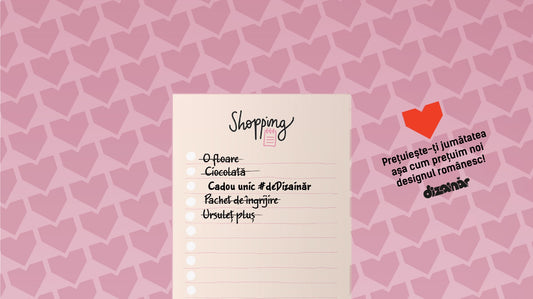 Shopping
O floare
Ciocolată
Cadou unic #deDizainăr
Pachet de îngrijire
Ursuleț pluș
Prețuiește-ți jumătatea
așa cum prețuim noi
designul românesc!
dizainăr